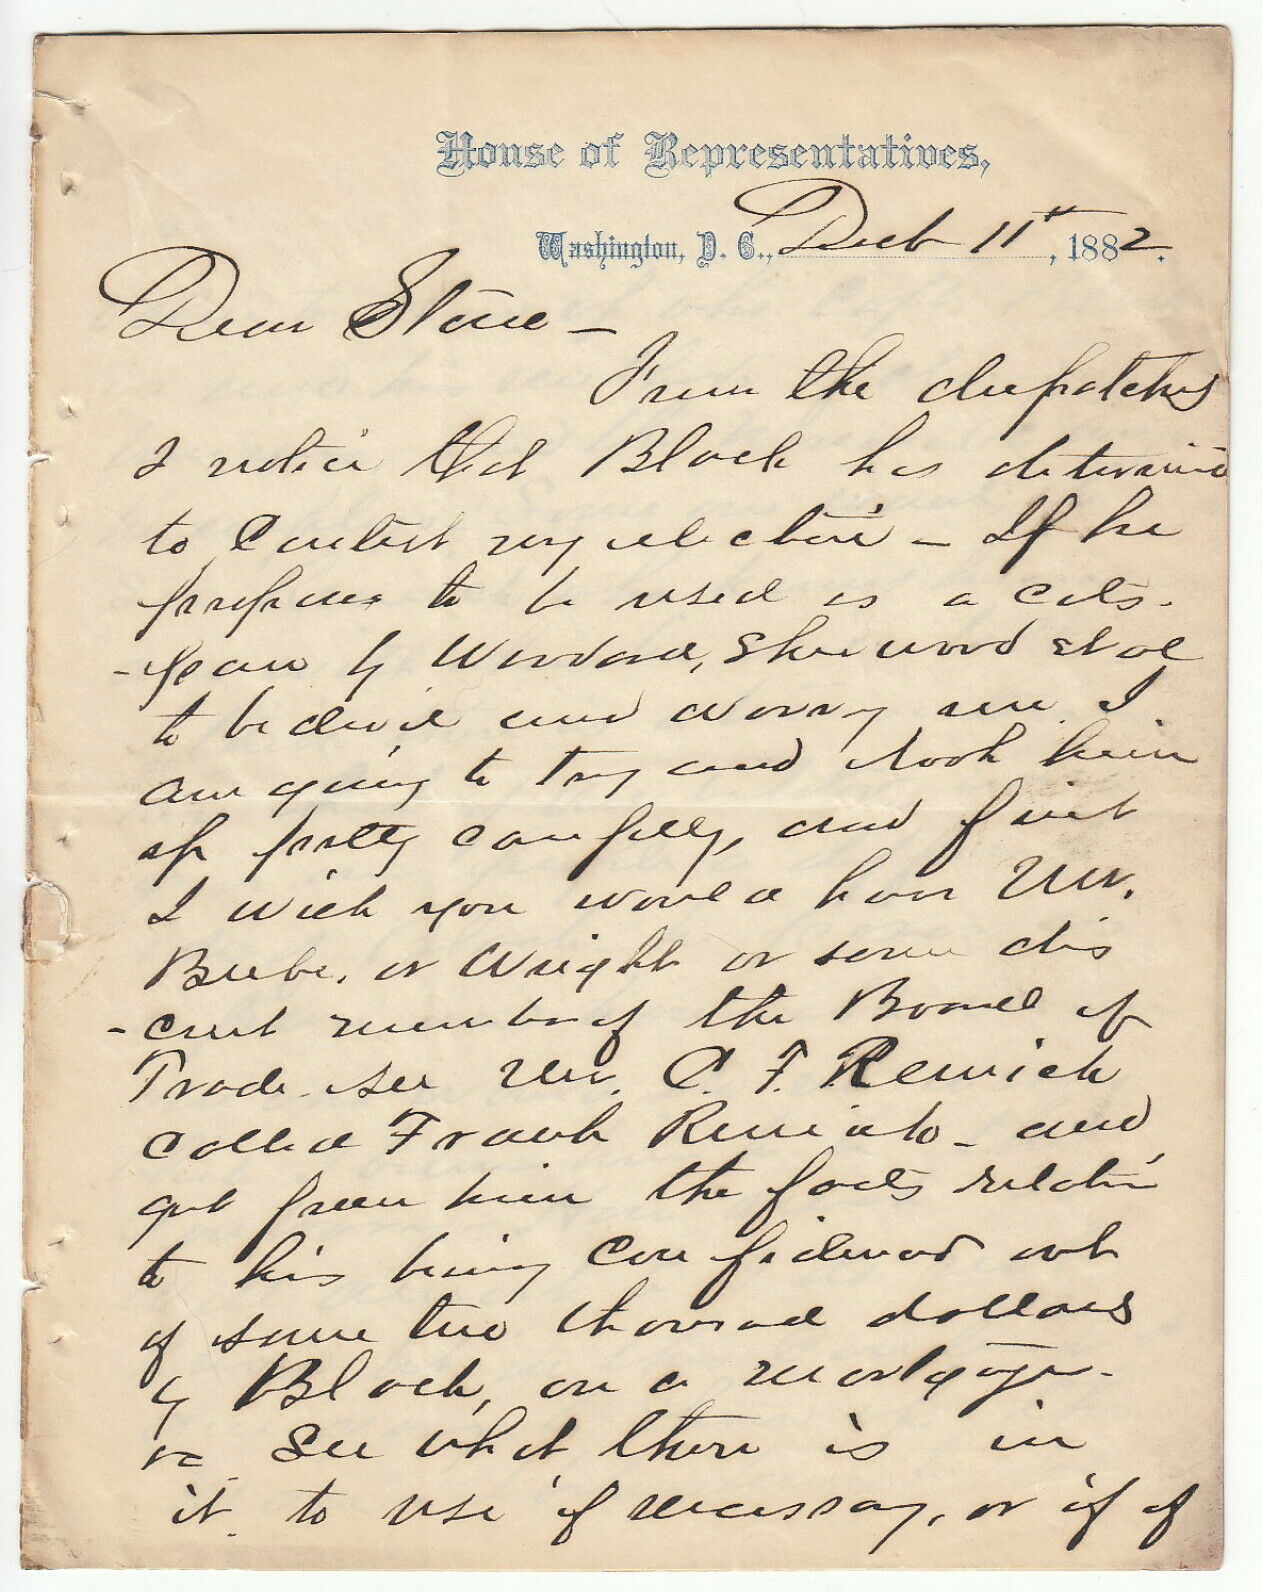 House of Representatives,
Washington, D. C., Dec 11th, 1882.
Dear Stone –
From the dispatches
I notice that Black has determined
to Contest my election – If he
proposes to be used as a cats-
-paw by Woodard, Sherwood et al
to bedevil and worry me I
am going to try and look him
up pretty carefully, and first
I wish you would have Mr.
Beebe, or Wright or some dis
-creet member of the Board of
Trade see Mr. C. F. Remick
called Frank Remick – and
get from him the facts relative
to his being Confidenced out
of some two thousand dollars
by Black, on a mortgage.
See what there is in
it to use if necessary, or if of